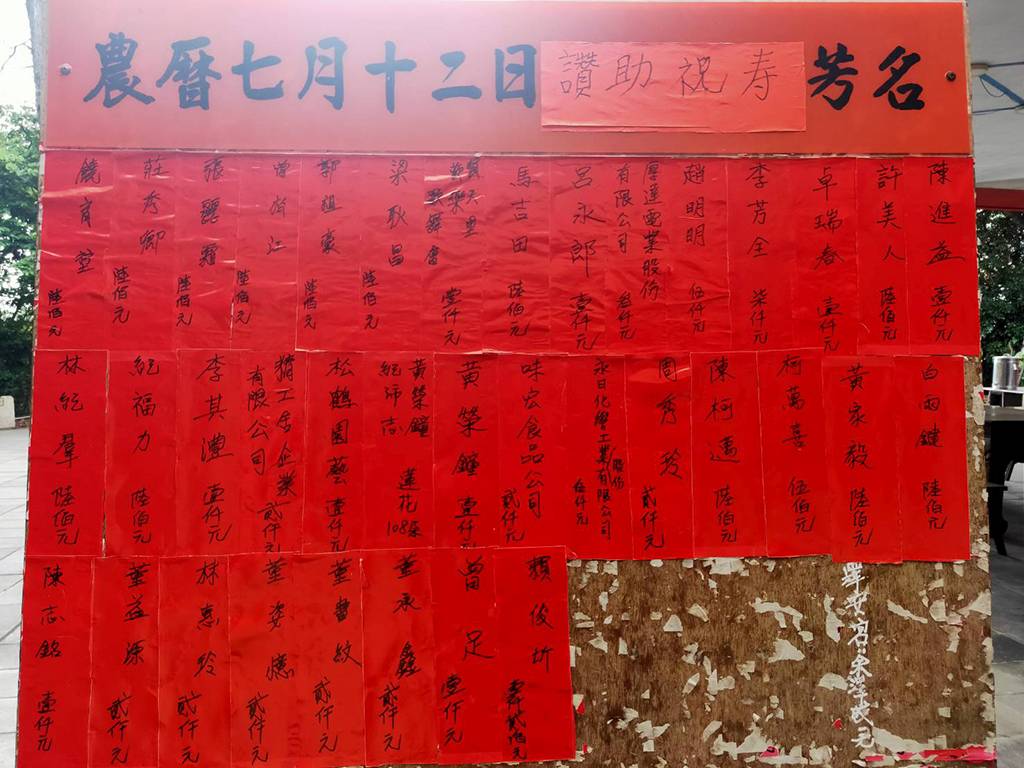 農曆七月十二日讚助祝寿芳名
陳進益 壹仟元
許美人 陸佰元
卓瑞春 壹仟元
李芳全 柒仟元
趙明明 伍仟元
厚達電業股份有限公司 叁仟元
呂永郎 壹仟元
馬吉田 陸佰元
歌舞會 壹仟元
梁耿昌 陸佰元
郭祖豪 陸佰元
曾尚江 陸佰元
張麗 陸佰元
莊秀卿 陸佰元
饒育堂 陸佰元
白雨鍵 陸佰元
黃家毅 陸佰元
柯萬喜 伍佰元
陳柯邁 陸佰元
周秀玲 貳仟元
永日化學工業股份有限公司 伍仟元
味宏食品公司 貳仟元
黃榮鐘 壹仟元
黃榮鐘 紀沛志 蓮花 108朵
松鶴園藝 壹仟元
精工居企業有限公司 貳仟元
李其澧 壹仟元
紀福力 陸佰元
林紀羣 陸佰元
賴俊圻
曾足 壹仟元
董承鑫 貳仟元
董書紋 貳仟元
董姿德 貳仟元
林惠玲 貳仟元
董益源 貳仟元
陳志銘 壹仟元